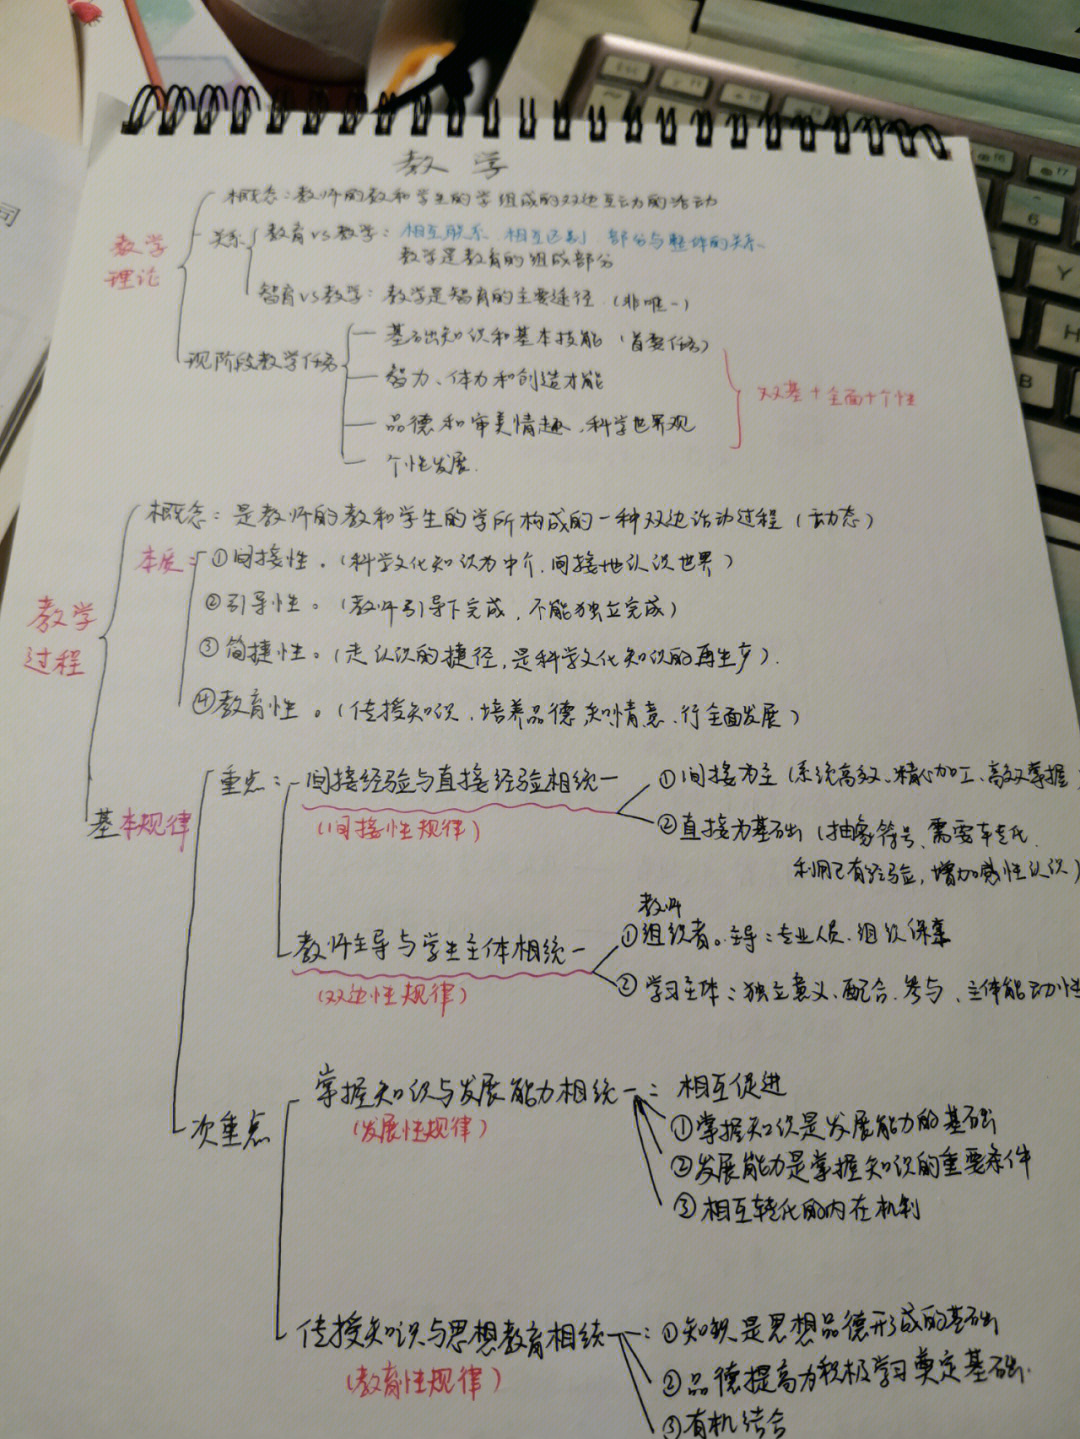 教学
教学
理论
概念：教师的教和学生的学组成的双边互动的活动
关系
教育vs教学：相互联系 相互区别 部分与整体的关系
教学是教育的组成部分
智育vs教学：教学是智育的主要途径（非唯一）
现阶段教学任务
基础知识和基本技能（首要任务）
智力、体力和创造才能
品德和审美情趣、科学世界观
个性发展.
双基+全面+个性
教学
过程
概念：是教师的教和学生的学所构成的一种双边活动过程（动态）
本质：
①间接性。（科学文化知识为中介.间接地认识世界）
②引导性。（教师引导下完成，不能独立完成）
③简捷性。（走认识的捷径，是科学文化知识的再生产）.
④教育性。（传授知识、培养品德 知情意、行全面发展）
基本规律
重点：
间接经验与直接经验相统一
（间接性规律）
①间接为主（系统高效、精心加工、高效掌握
②直接为基础（抽象符号、需要转化、
利用已有经验，增加感性认识）
教师主导与学生主体相统一
（双边性规律）
教师
①组织者。主导：专业人员.组织保案
②学习主体：独立意义、配合、参与、主体能动性
次重点
掌握知识与发展能力相统一：相互促进
（发展性规律）
①掌握知识是发展能力的基础
②发展能力是掌握知识的重要条件
③相互转化的内在机制
传授知识与思想教育相统一：
（教育性规律）
①知识是思想品德形成的基础
②品德提高为积极学习奠定基础.
③有机结合
F6
F7
6
Y
H
B